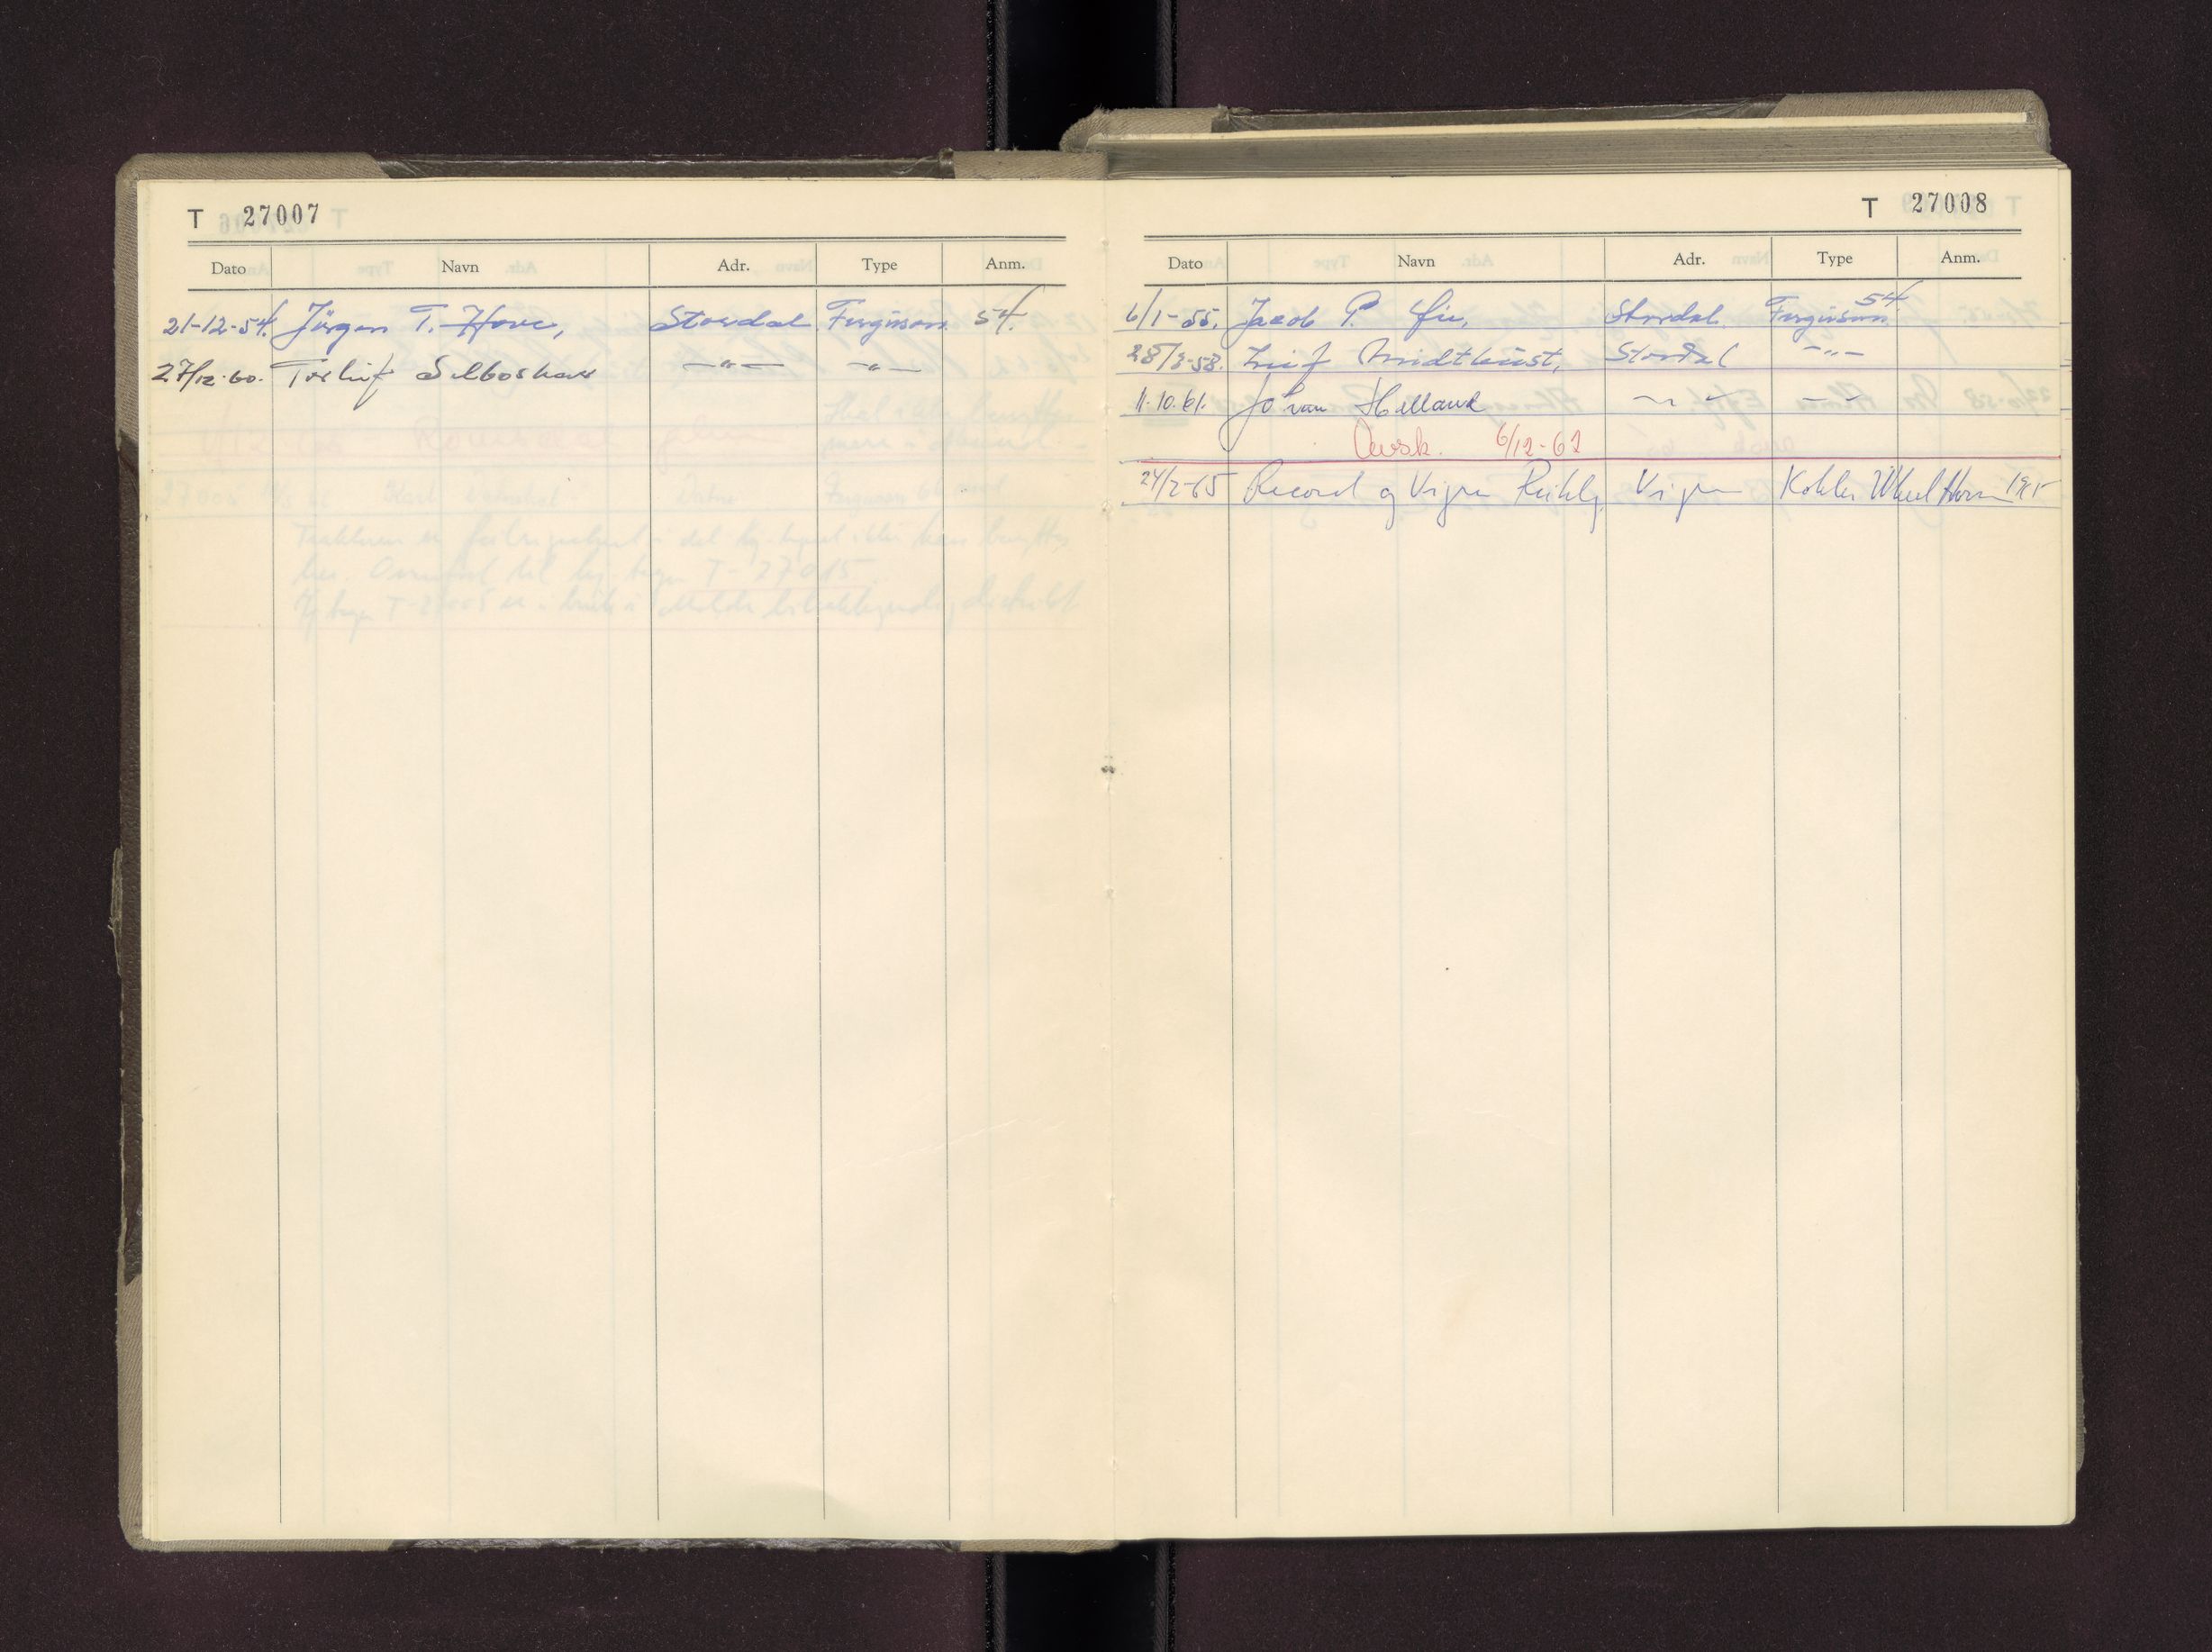 T 27007
Dato Navn Adr. Type Anm.
21-12-54. Jørgen T. Hove, Stordal Ferguson 54.
27/12-60. Torleif Selboskar —"— —"—
T 27008
Dato Navn Adr. Type Anm.
6/1-55. Jacob P. Stordal. Ferguson 54
28/3-58. Leif Midtkust, Stordal —"—
11.10.61. Johan Helland — " — "
Avsk. 6/12-62
24/2-65 Record og Vigra Vigra Kohler Wheel Horse 1965